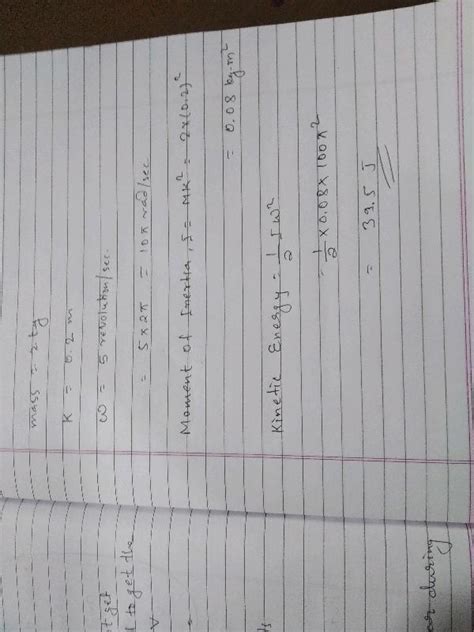 mass = 2 kg
K = 0.2 m
ω = 5 revolution/sec.
= 5 x 2π = 10π rad/sec
Moment of Inertia, I = MK² = 2x(0.2)²
= 0.08 kg-m²
Kinetic Energy = 1/2 I ω²
= 1/2 x 0.08 x 100π²
= 39.5 J
t get
to get the
during